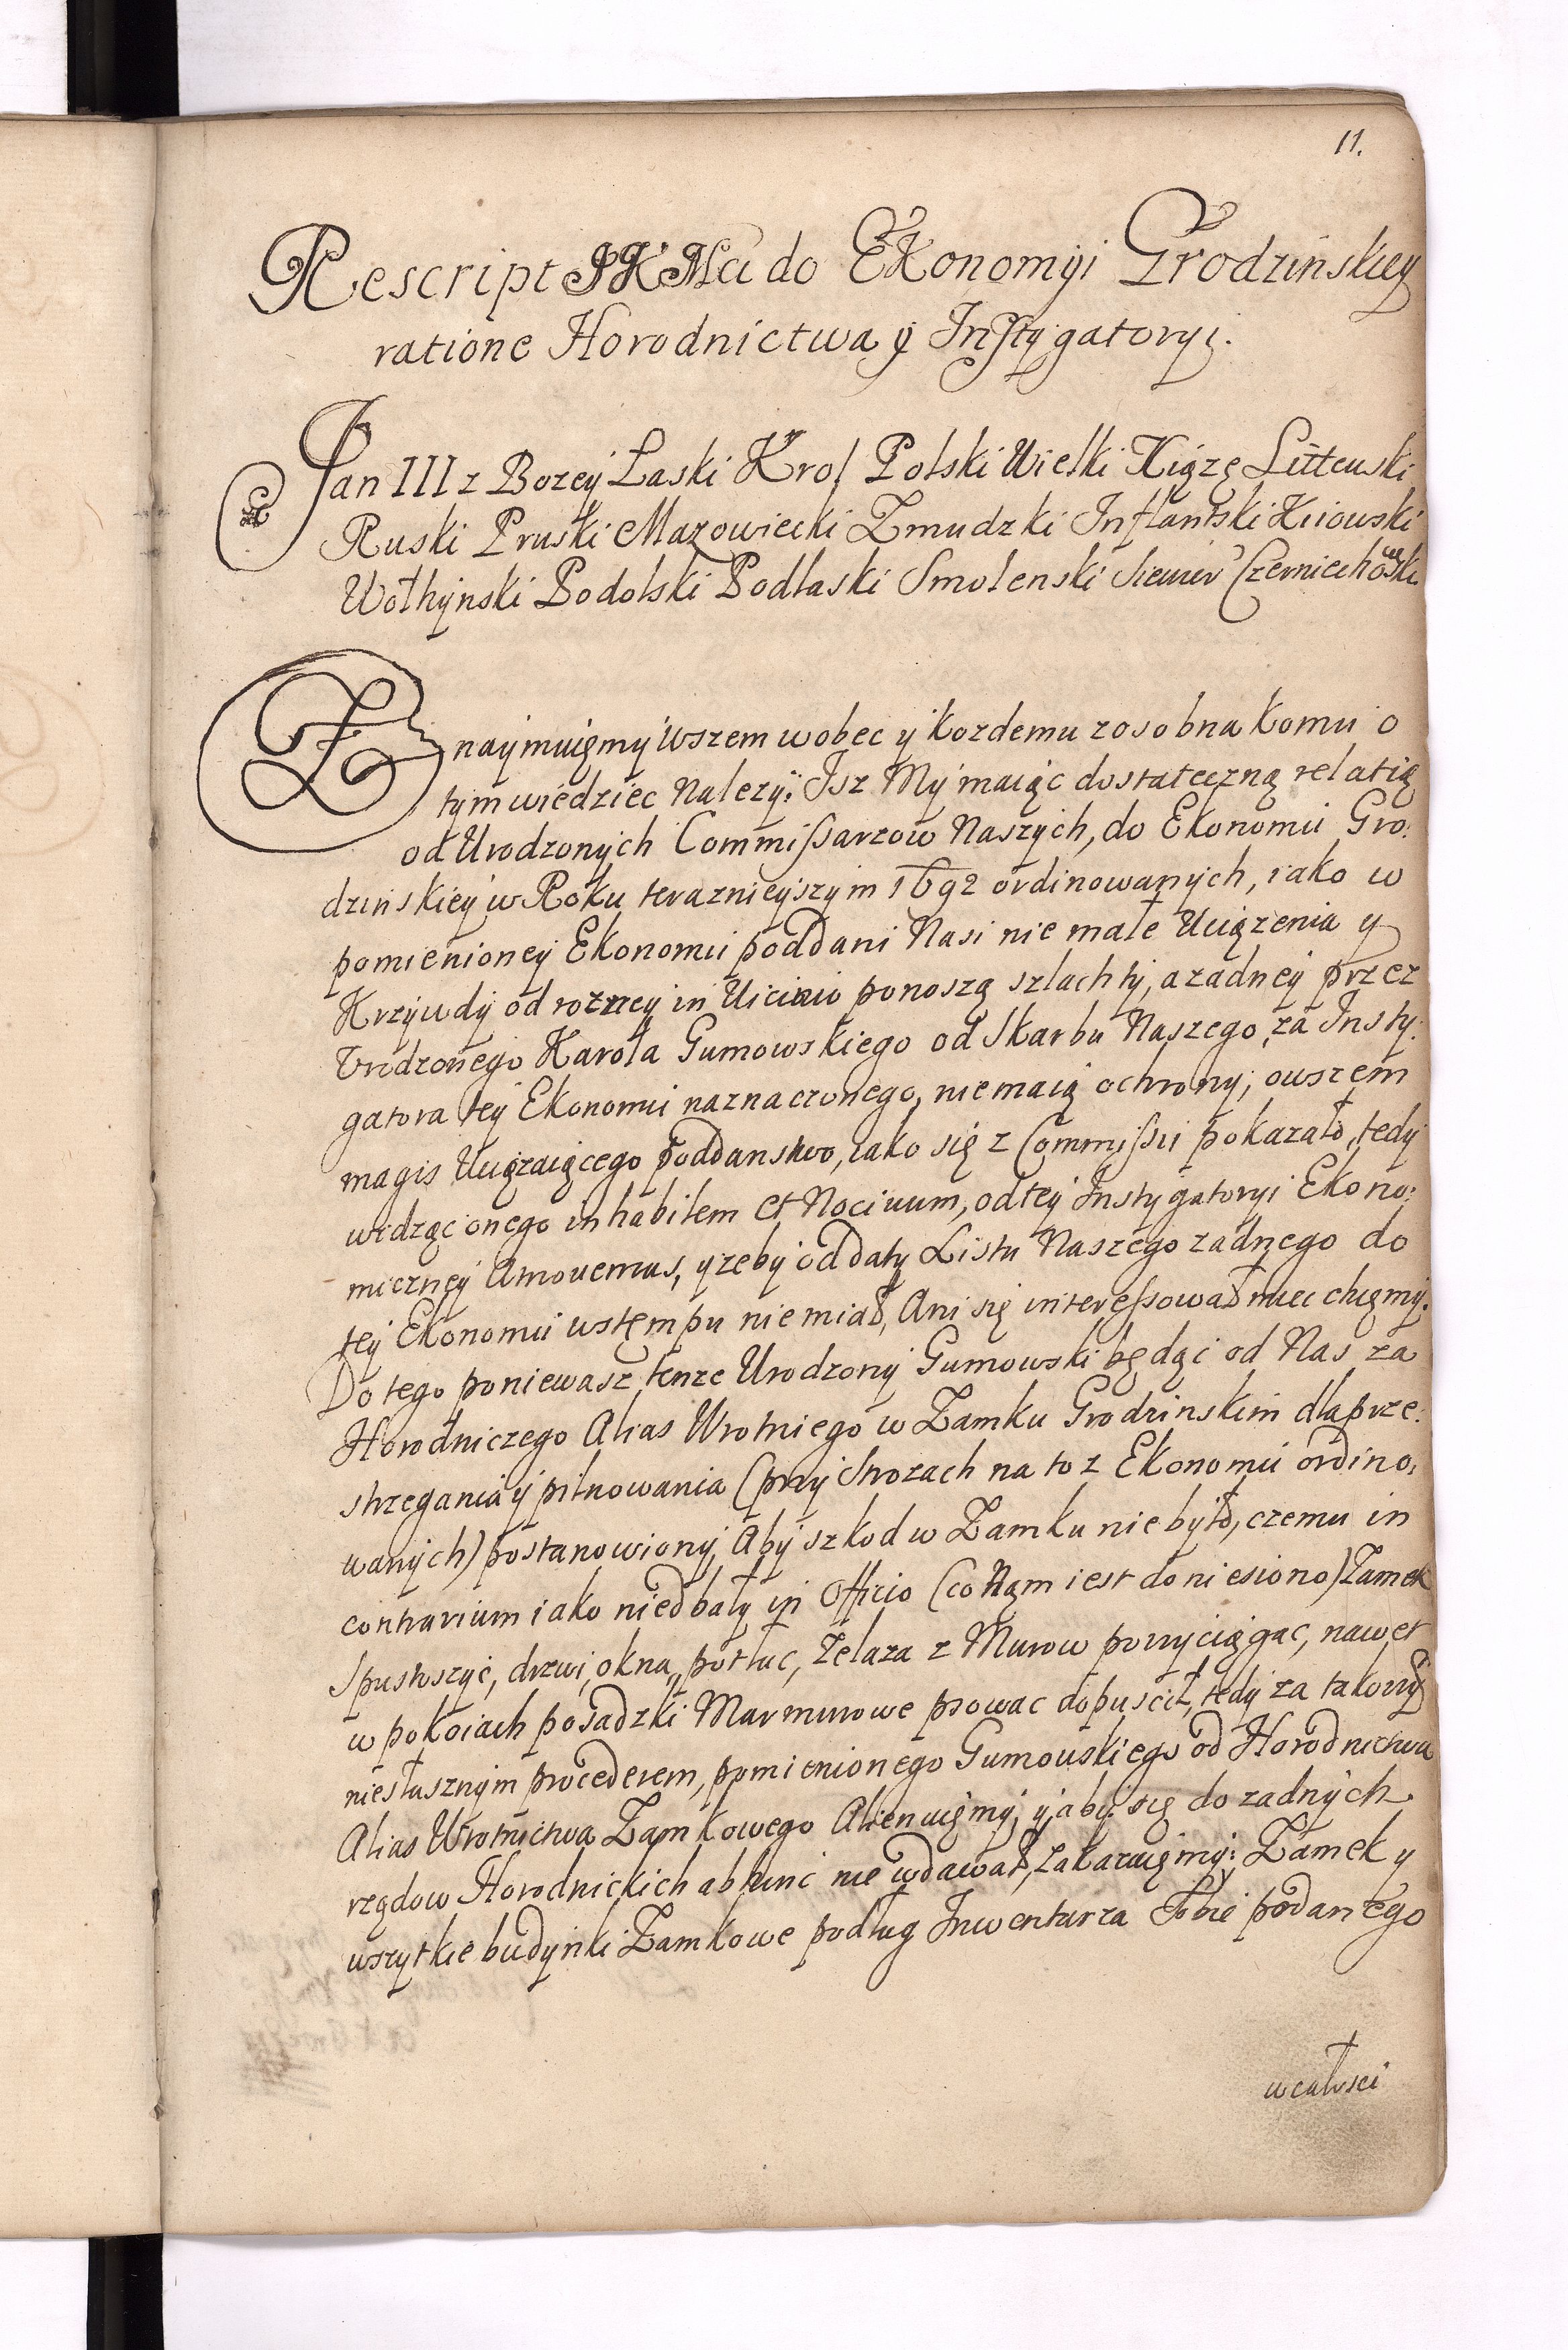 11.
Rescript JKMci do Ekonomyi Grodzinskiey
ratione Horodnictwa y Instygatoryi.
Jan III z Bozey Łaski Krol Polski Wielki Xiązę Littewski
Ruski Pruski Mazowiecki Zmudzki Inflantski Kiiowski
Wołhynski Podolski Podlaski Smolenski Siewier Czerniechowski
Znaymuięmy wszem wobec y kozdemu zosobna komu o
tym wiedziec Nalezy: Isz My maiąc dostateczną relatią
od Urodzonych Commissarzow Naszych, do Ekonomii Gro:
dzinskiey w Roku teraznieyszym 1692 ordinowanych, iako w
pomienioney Ekonomii poddani Nasi nie małe Uciązenia y
Krzywdy od rozney in Vicinio ponoszą szlachty, a zadney przez
Urodzonego Karola Gumowskiego od Skarbu Naszego za Insty:
gatora tey Ekonomii naznaczonego, niemaią ochrony; owszem
magis Uciązaiącego poddanstwo, iako się z Commissii pokazało, tedy
widząc onego inhabilem et Nocivum, od tey Instygatoryi Ekono:
miczney Amovemus, y zeby od daty Listu Naszego zadnego do
tey Ekonomii wstęmpu nie miał, Ani się interessował miec chcęmy.
Do tego poniewasz tenze Urodzony Gumowski będąc od Nas za
Horodniczego Alias Wrotniego w Zamku Grodzinskim dla prze:
strzegania y pilnowania (przy Strozach na to z Ekonomii ordino:
wanych) postanowiony, Aby szkod w Zamku nie było, czemu in
contrarium iako niedbały in Officio (co Nam iest doniesiono) Zamek
Spustoszyc, drzwi, okna, potłuc, Zelaza z Murow powyciągac, nawet
w pokoiach posadzki Marmurowe psowac dopuscił, tedy za takowym
niesłusznym procederem, pomienionego Gumowskiego od Horodnictwa
Alias Wrotnictwa Zamkowego Alienuięmy, y aby się do zadnych
rządow Horodnickich ab hinc nie wdawał, zakazuięmy: Zamek y
wszytkie budynki Zamkowe podług Inwentarza Sobie podanego
w całosci